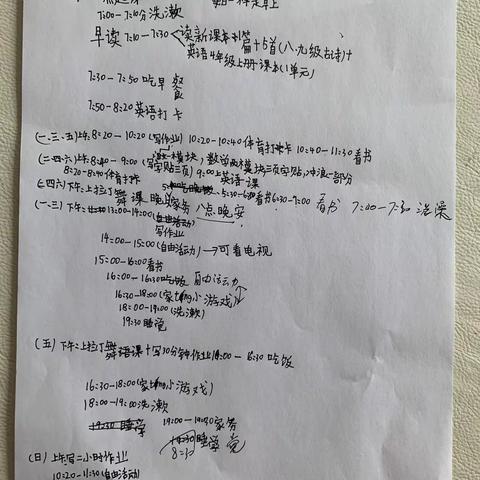 7:00-7:10分洗漱
早读 7:10-7:30 读新课本1篇+5首(八.九级古诗)+
英语4年级上册课本(1单元)
7:30-7:50吃早餐
7:50-8:20英语打卡
(一.三.五)上午8:20-10:20(写作业) 10:20-10:40体育打卡 10:40-11:30看书
(二.四.六)上午8:40-9:00(写字贴三页)
8:20-8:40体育打卡 9:00上英语课
(二.四.六)下午上拉丁舞课 5:30-6:30看书6:30-7:00 看书 7:00-7:30洗澡
八点晚安
(一.三)下午 13:00-14:00(自由活动)
写作业
14:00-15:00(自由活动)→可看电视
15:00-16:00看书
16:00-16:30吃饭 自由活动
16:30-18:00(家务和小游戏)
18:00-19:00(洗漱)
19:30睡觉
(五)下午上拉丁舞课+写30分钟作业16:00-16:30吃饭
16:30-18:00(小游戏)
18:00-19:00洗漱
19:30睡觉 19:00-19:30家务
19:30睡觉
8:30
(日)上午写二小时作业
10:20-11:30(自由活动)